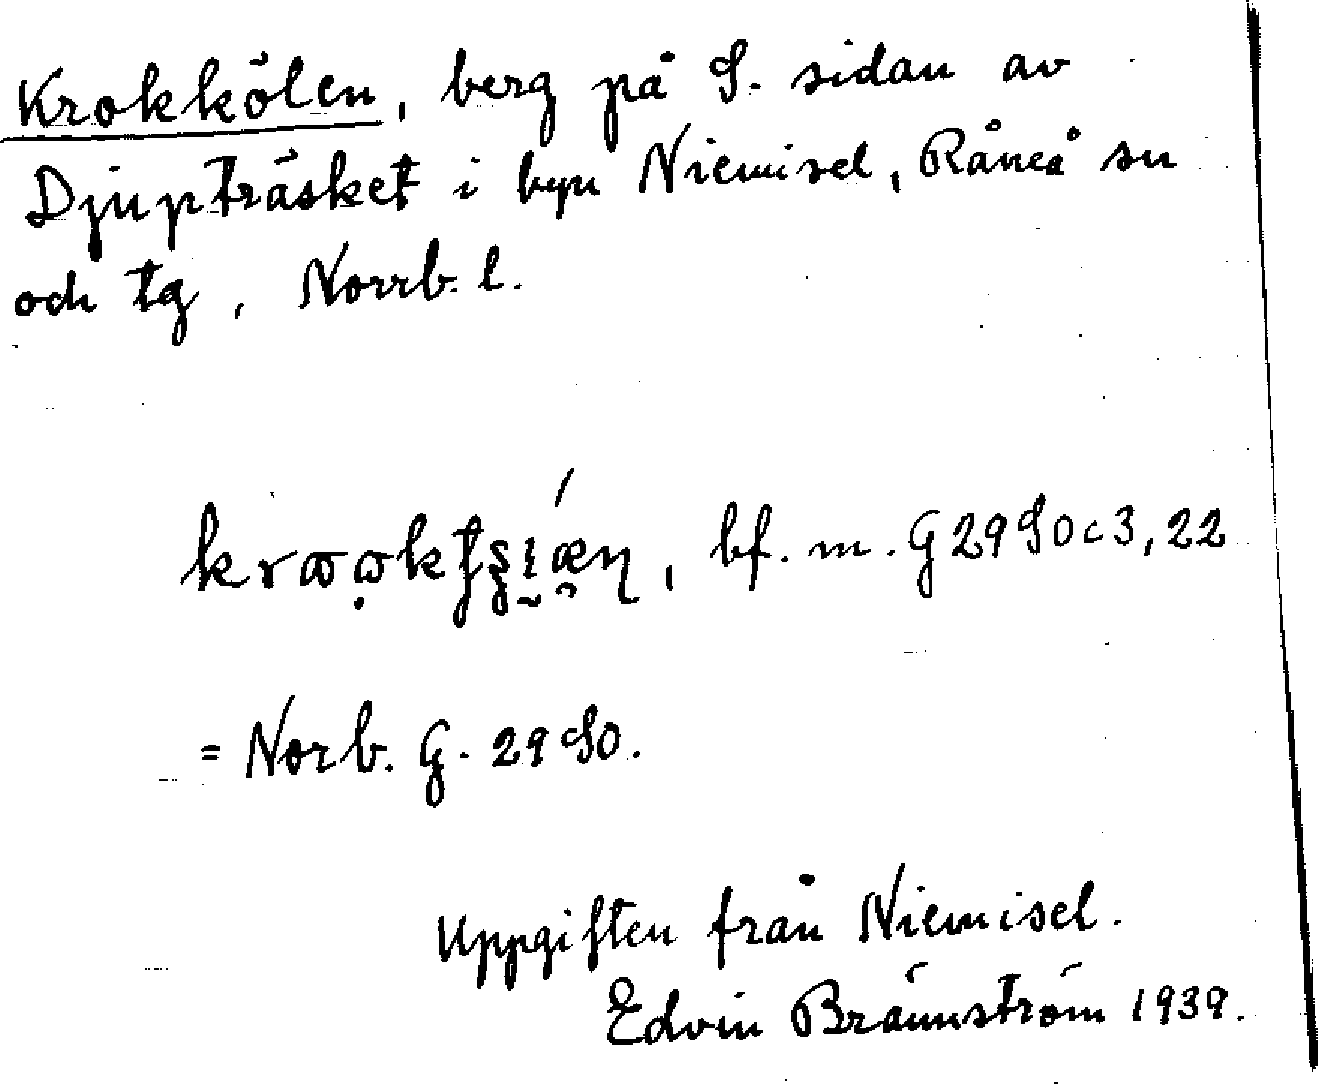 Krokkölen, berg på S. sidan av
Djupträsket i byn Niemisel, Råneå sn
och tg, Norrb. l.
bf. m. G 29 S0 c 3, 22
= Norb. G. 29 S0.
Uppgiften från Niemisel.
Edvin Brännström 1939.